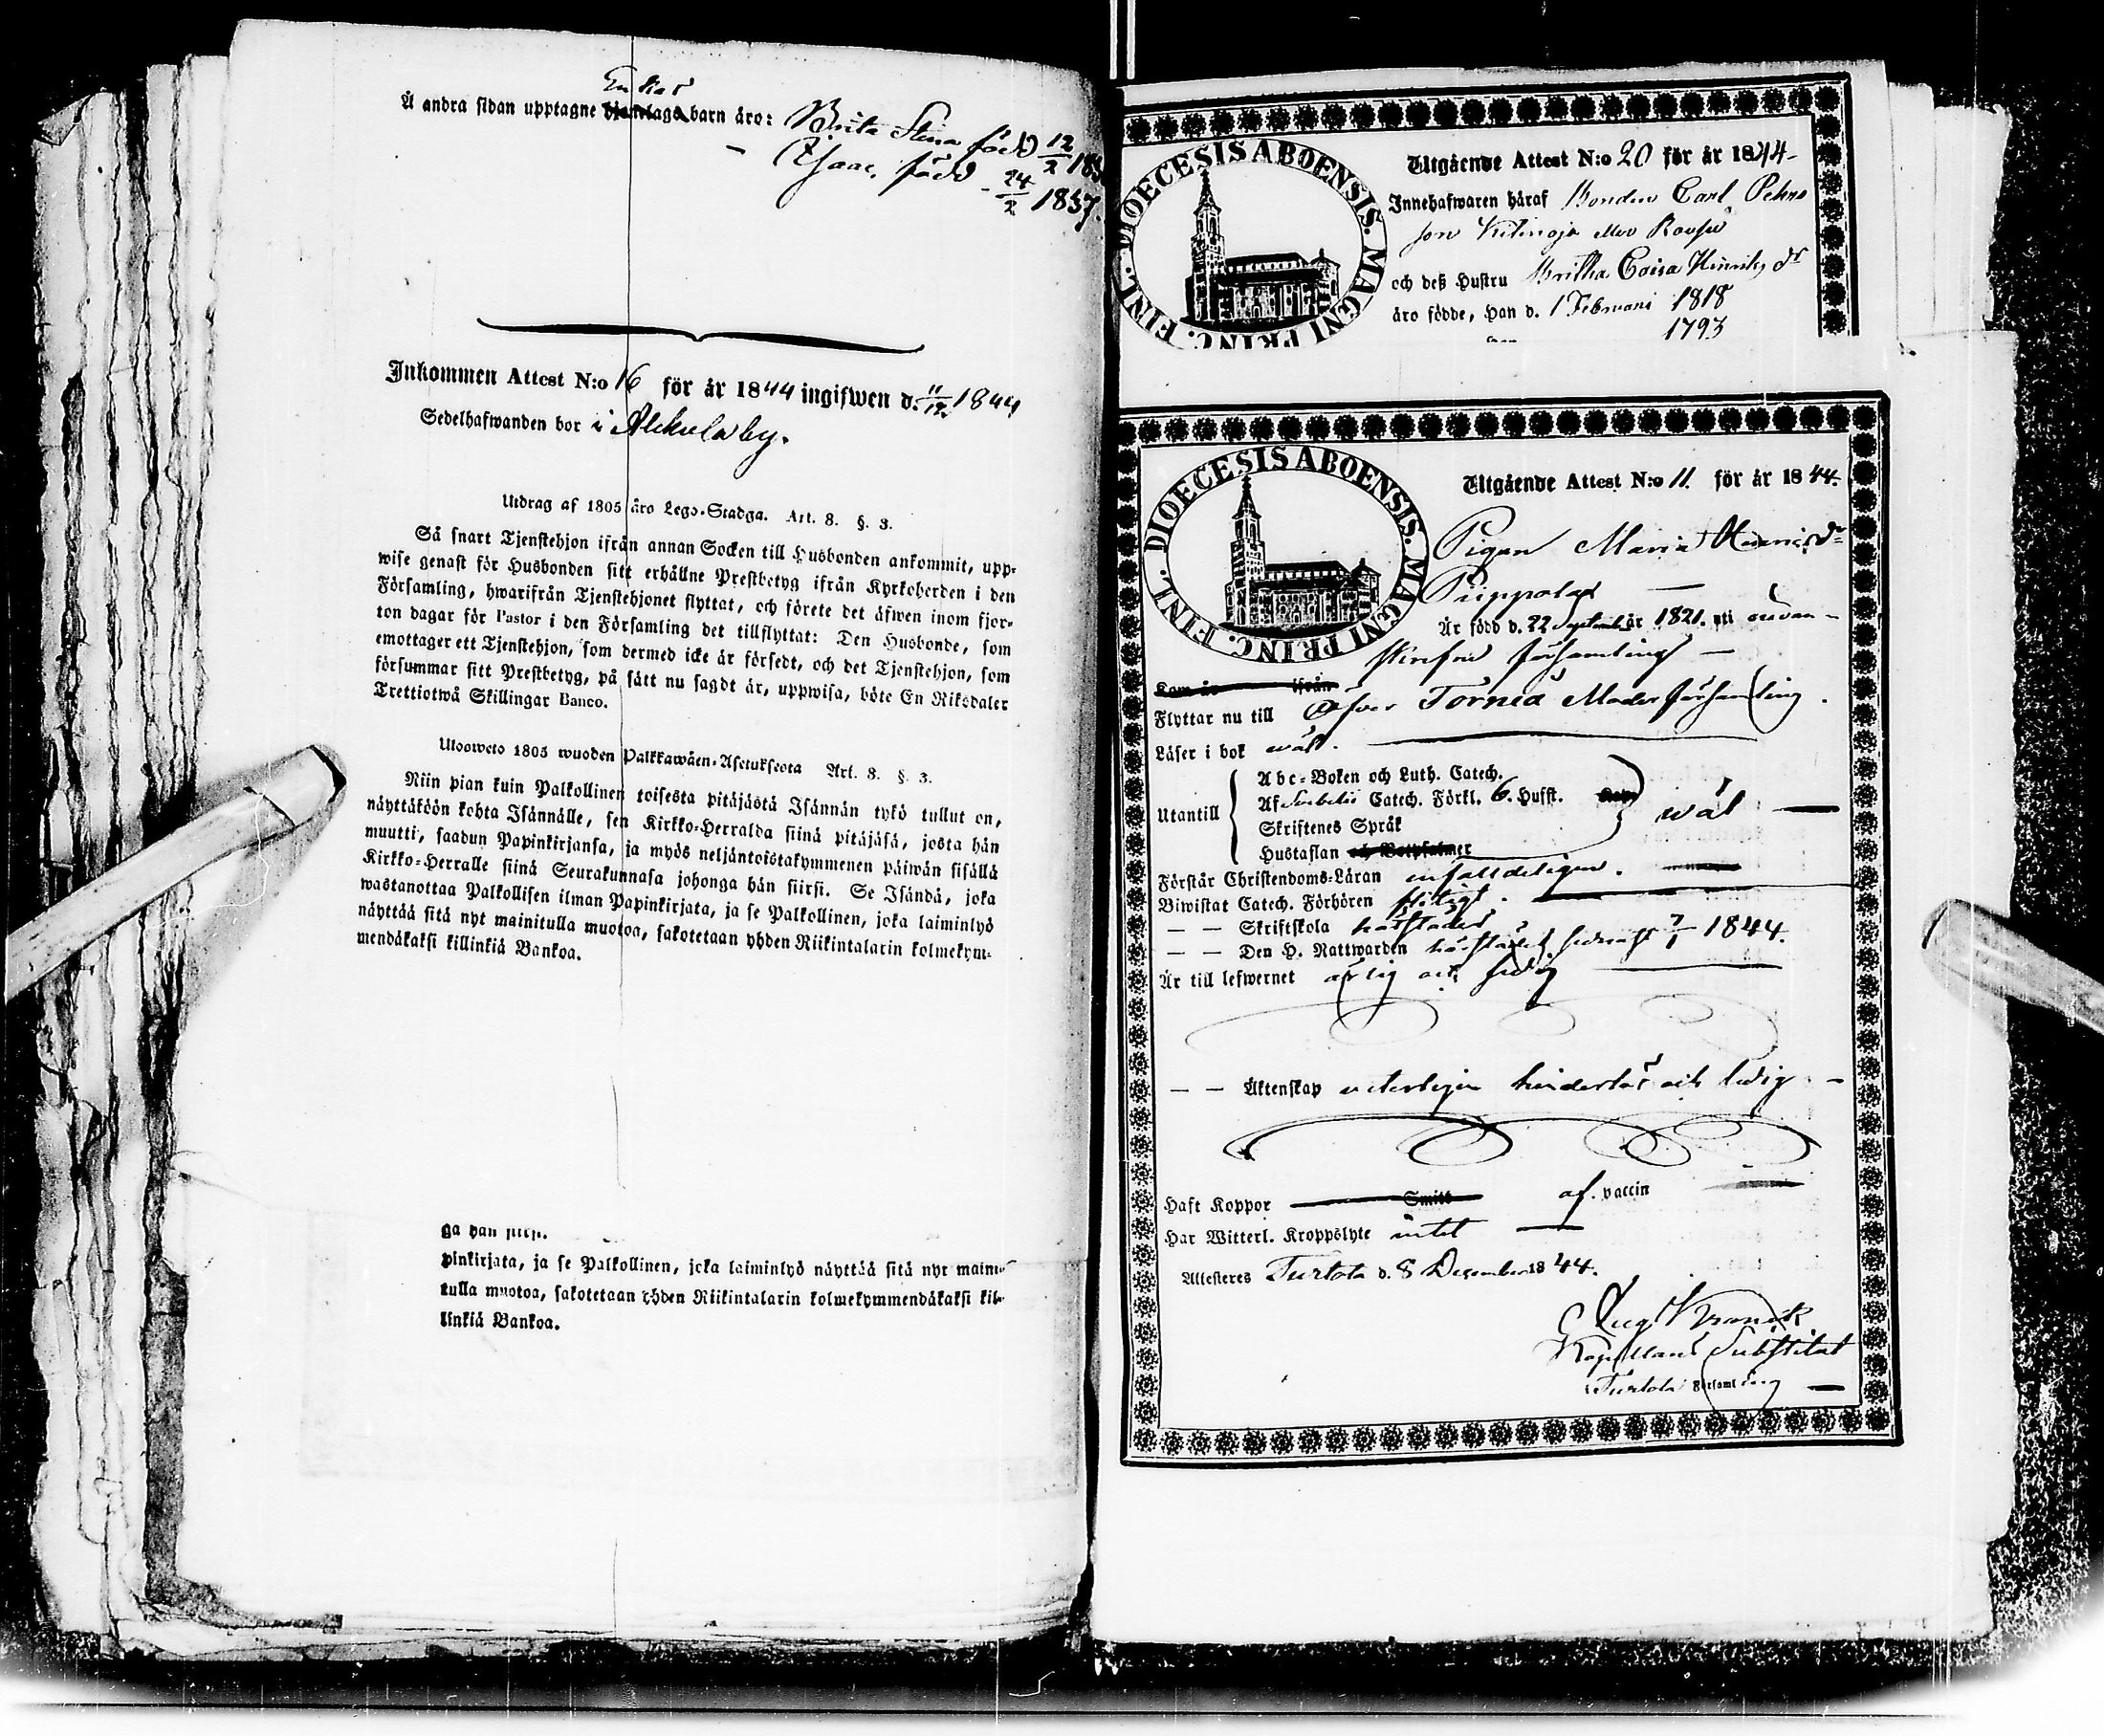 Enkas
Å andra sidan upptagne hjonelags barn äro: Brita Stina född 12/2 183
Isaac, född 24/2 1837.
Inkommen Attest N:o 16 för år 1844 ingifwen d. 11/12 1844
Sedelhafwanden bor i Alckula by.
Utdrag af 1805 års Lego-Stadga. Art. 8. §. 3.
Så snart Tjenstehjon ifrån annan Socken till Husbonden ankommit, upp-
wise genast för Husbonden sitt erhållne Prestbetyg ifrån Kyrkoherden i den
Församling, hwarifrån Tjenstehjonet flyttat, och förete det äfwen inom fjor-
ton dagar för Pastor i den Församling det tillflyttat: Den Husbonde, som
emottager ett Tjenstehjon, som dermed icke är försedt, och det Tjenstehjon, som
försummar sitt Prestbetyg, på sätt nu sagdt är, uppwisa, böte En Riksdaler
Trettiotwå Skillingar Banco.
Ulosweto 1805 wuoden Palkkawäen-Asetuksesta Art. 8. §. 3.
Niin pian kuin Palkollinen toisesta pitäjästä Isännän tykö tullut on,
näyttäköön kohta Isännälle, sen Kirkko-Herralda siinä pitäjäsä, josta hän
muutti, saadun Papinkirjansa, ja myös neljäntoistakymmenen päiwän sisällä
Kirkko-Herralle siinä Seurakunnasa johonga hän siirsi. Se Isändä, joka
wastanottaa Palkollisen ilman Papinkirjata, ja se Palkollinen, joka laiminlyö
näyttää sitä nyt mainitulla muotoa, sakotetaan yhden Riikintalarin kolmekym-
mendäkaksi killinkiä Bankoa.
ga hän siirsi.
pinkirjata, ja se Palkollinen, joka laiminlyö näyttää sitä nyt maini-
tulla muotoa, sakotetaan yhden Riikintalarin kolmekymmendäkaksi kil-
linkiä Bankoa.
DIOECESIS ABOENSIS. MAGNI PRINC. FINL.
Utgående Attest N:o 20 för år 1844
Innehafwaren häraf Bonden Carl Pehrs
son
och deß Hustru Britha Caisa Hinriks dr
äro födde, Han d. 1 Februari 1818
1793
DIOECESIS ABOENSIS. MAGNI PRINC. FINL.
Utgående Attest N:o 11. för år 1844.
Pigan Maria dr
Är född d. 22 September år 1821. uti ouvan-
skrefne församling
Kom år ifrån
Flyttar nu till Öfver Torneå Moder församling.
Läser i bok wäl.
Abc-Boken och Luth. Catech.
Utantill Af Svebelii Catech. Förkl. 6. Hufst. wäl
Skriftenes Språk
Hustaflan och Botpsalmer
Förstår Christendoms-Läran enfaldeligen.
Biwistat Catech. Förhören flitigt.
— — Skriftskola härstädes
— — Den H. Nattwarden härstädes sednast 7/1 1844.
Är till lefwernet ärlig och sedig
— — Äktenskap veterligen hinderlös och ledig
Haft Koppor Smitt af. vaccin
Har Witterl. Kroppslyte intet
Attesteres Turtola d. 8 December 1844.
C Aug
Kapellans Substitut
i Turtola Församling